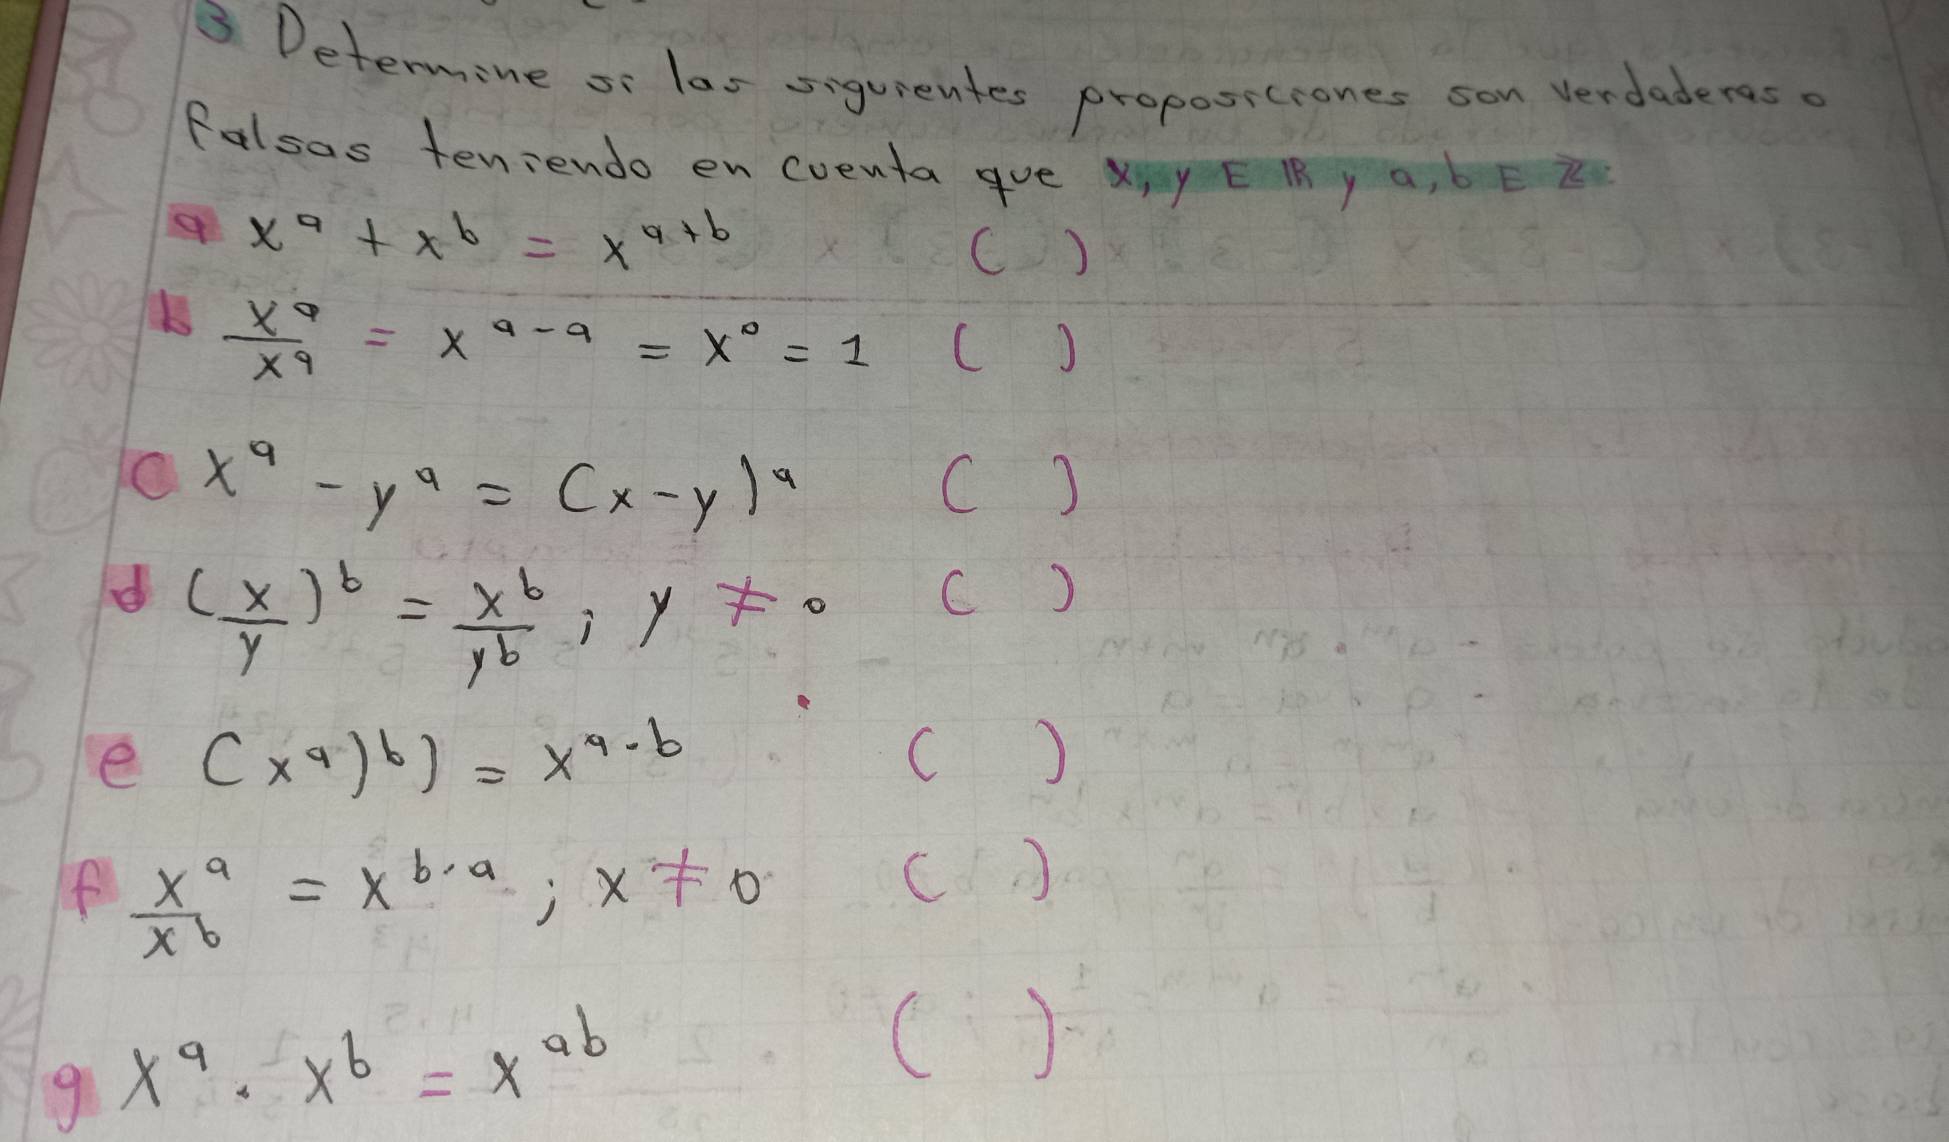 3 Determine si las siguientes proposiciones son verdaderas o
falsas teniendo en cuenta que x, y E IR y a, b E Z:
a x^a + x^b = x^(a+b) ( )
b x^a/x^a = x^(a-a) = x^0 = 1 ( )
c x^a - y^a = (x-y)^a ( )
d (x/y)^b = x^b/y^b ; y ≠ 0 ( )
e (x^a)^b) = x^(a·b) ( )
f x^a/x^b = x^(b·a) ; x ≠ 0 ( )
g x^a · x^b = x^(ab) ( )